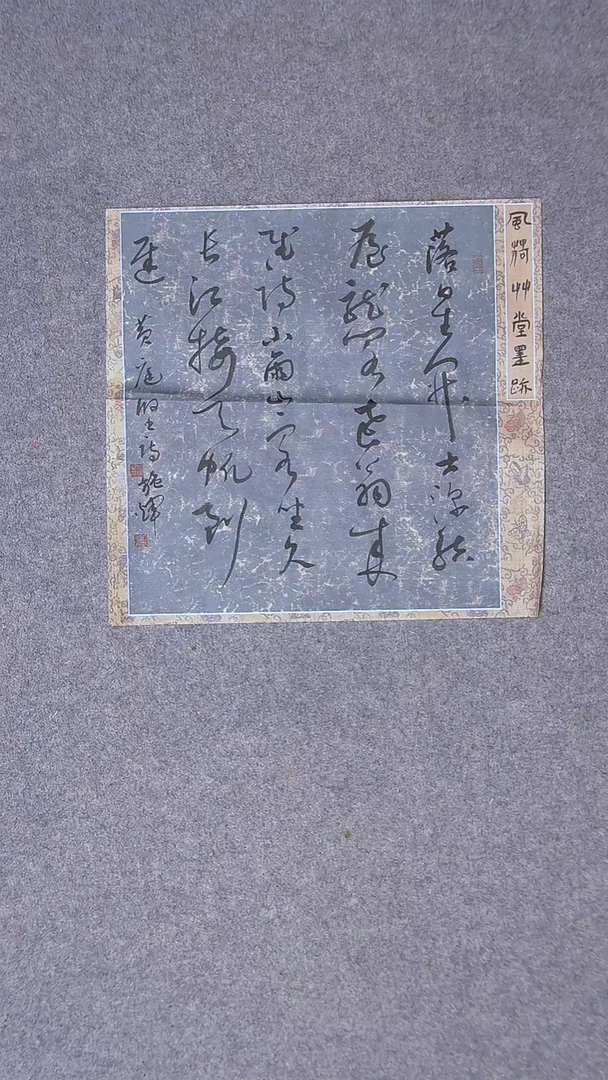 風荷艸堂墨跡
落星開士深結
屋龍閣老翁來
賦詩小雨山客坐久
長江接天帆到
遲 黃庭堅詩